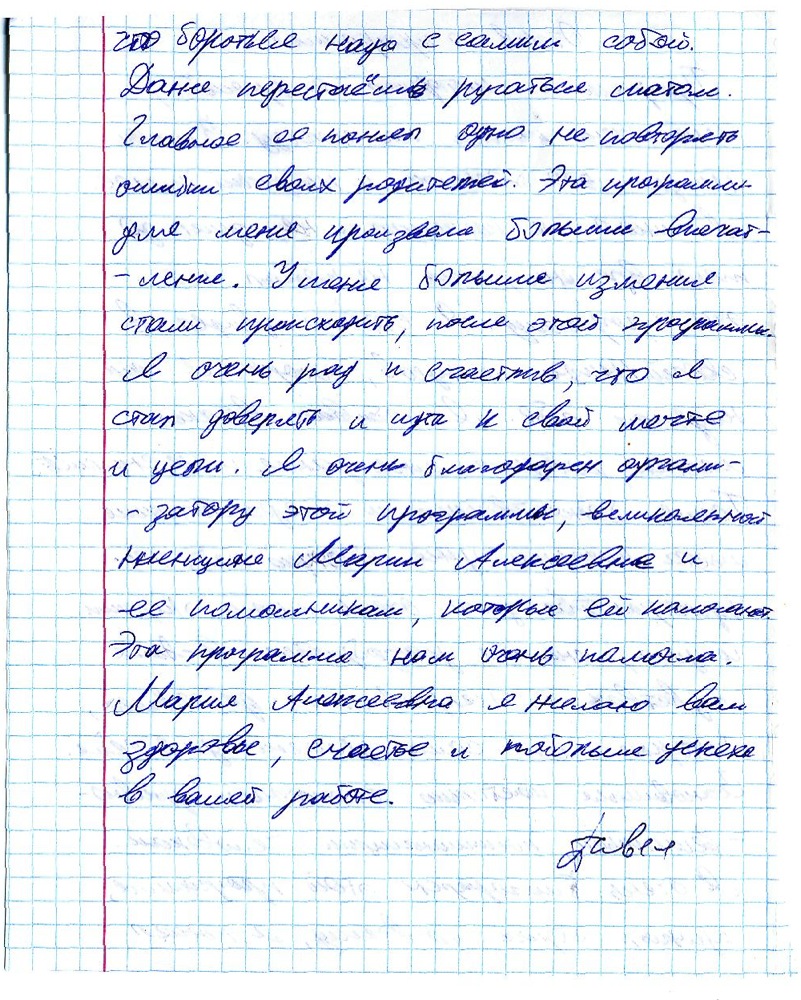 что бороться надо с самим собой.
Даже перестаёшь ругаться матом.
Главное я понял одно не повторять
ошибки своих родителей. Эта программа
для меня произвела большие впечат-
-ления. У меня большие изменения
стали происходить, после этой программы.
Я очень рад и счастлив, что я
стал доверять и идти к своей мечте
и цели. Я очень благодарен органи-
-затору этой программы, великолепной
женщине Марии Алексеевне и
ее помощникам, которые ей помогают.
Эта программа нам очень помогла.
Мария Алексеевна я желаю вам
здоровье, счастье и побольше успеха
в вашей работе.
Павел